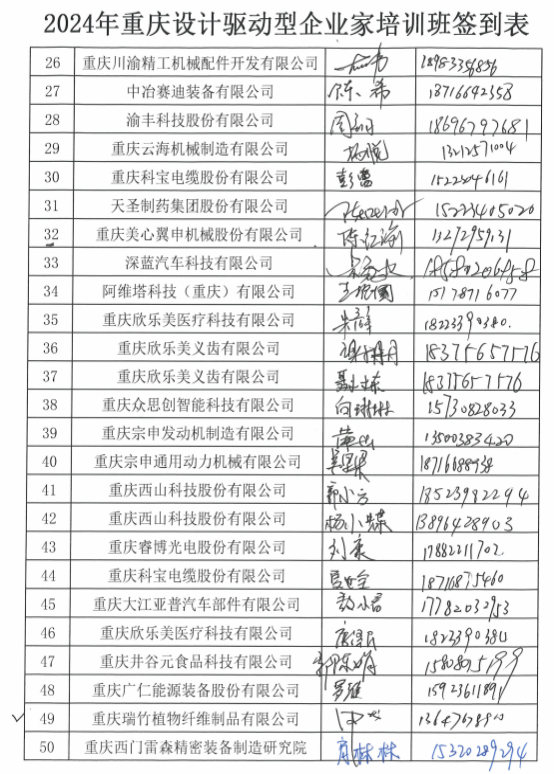 2024年重庆设计驱动型企业家培训班签到表
26 重庆川渝精工机械配件开发有限公司 18983356856
27 中冶赛迪装备有限公司 13716642358
28 渝丰科技股份有限公司 18696797681
29 重庆云海机械制造有限公司 杨悦 13212571004
30 重庆科宝电缆股份有限公司 彭雷 15223046161
31 天圣制药集团股份有限公司 15223405020
32 重庆美心翼申机械股份有限公司 13272959131
33 深蓝汽车科技有限公司
34 阿维塔科技（重庆）有限公司 15178716077
35 重庆欣乐美医疗科技有限公司 18223390380.
36 重庆欣乐美义齿有限公司 18375657576
37 重庆欣乐美义齿有限公司 18375657576
38 重庆众思创智能科技有限公司 向琳琳 15730828033
39 重庆宗申发动机制造有限公司 13500383420
40 重庆宗申通用动力机械有限公司 18716688938
41 重庆西山科技股份有限公司 郭小方 18523982294
42 重庆西山科技股份有限公司 杨小蝶 13896428903
43 重庆睿博光电股份有限公司 17882211702
44 重庆科宝电缆股份有限公司 18716875460
45 重庆大江亚普汽车部件有限公司 17782032953
46 重庆欣乐美医疗科技有限公司 1822339038
47 重庆井谷元食品科技有限公司 15808075199
48 重庆广仁能源装备股份有限公司 罗维 15923611891
49 重庆瑞竹植物纤维制品有限公司
50 重庆西门雷森精密装备制造研究院 15320289294